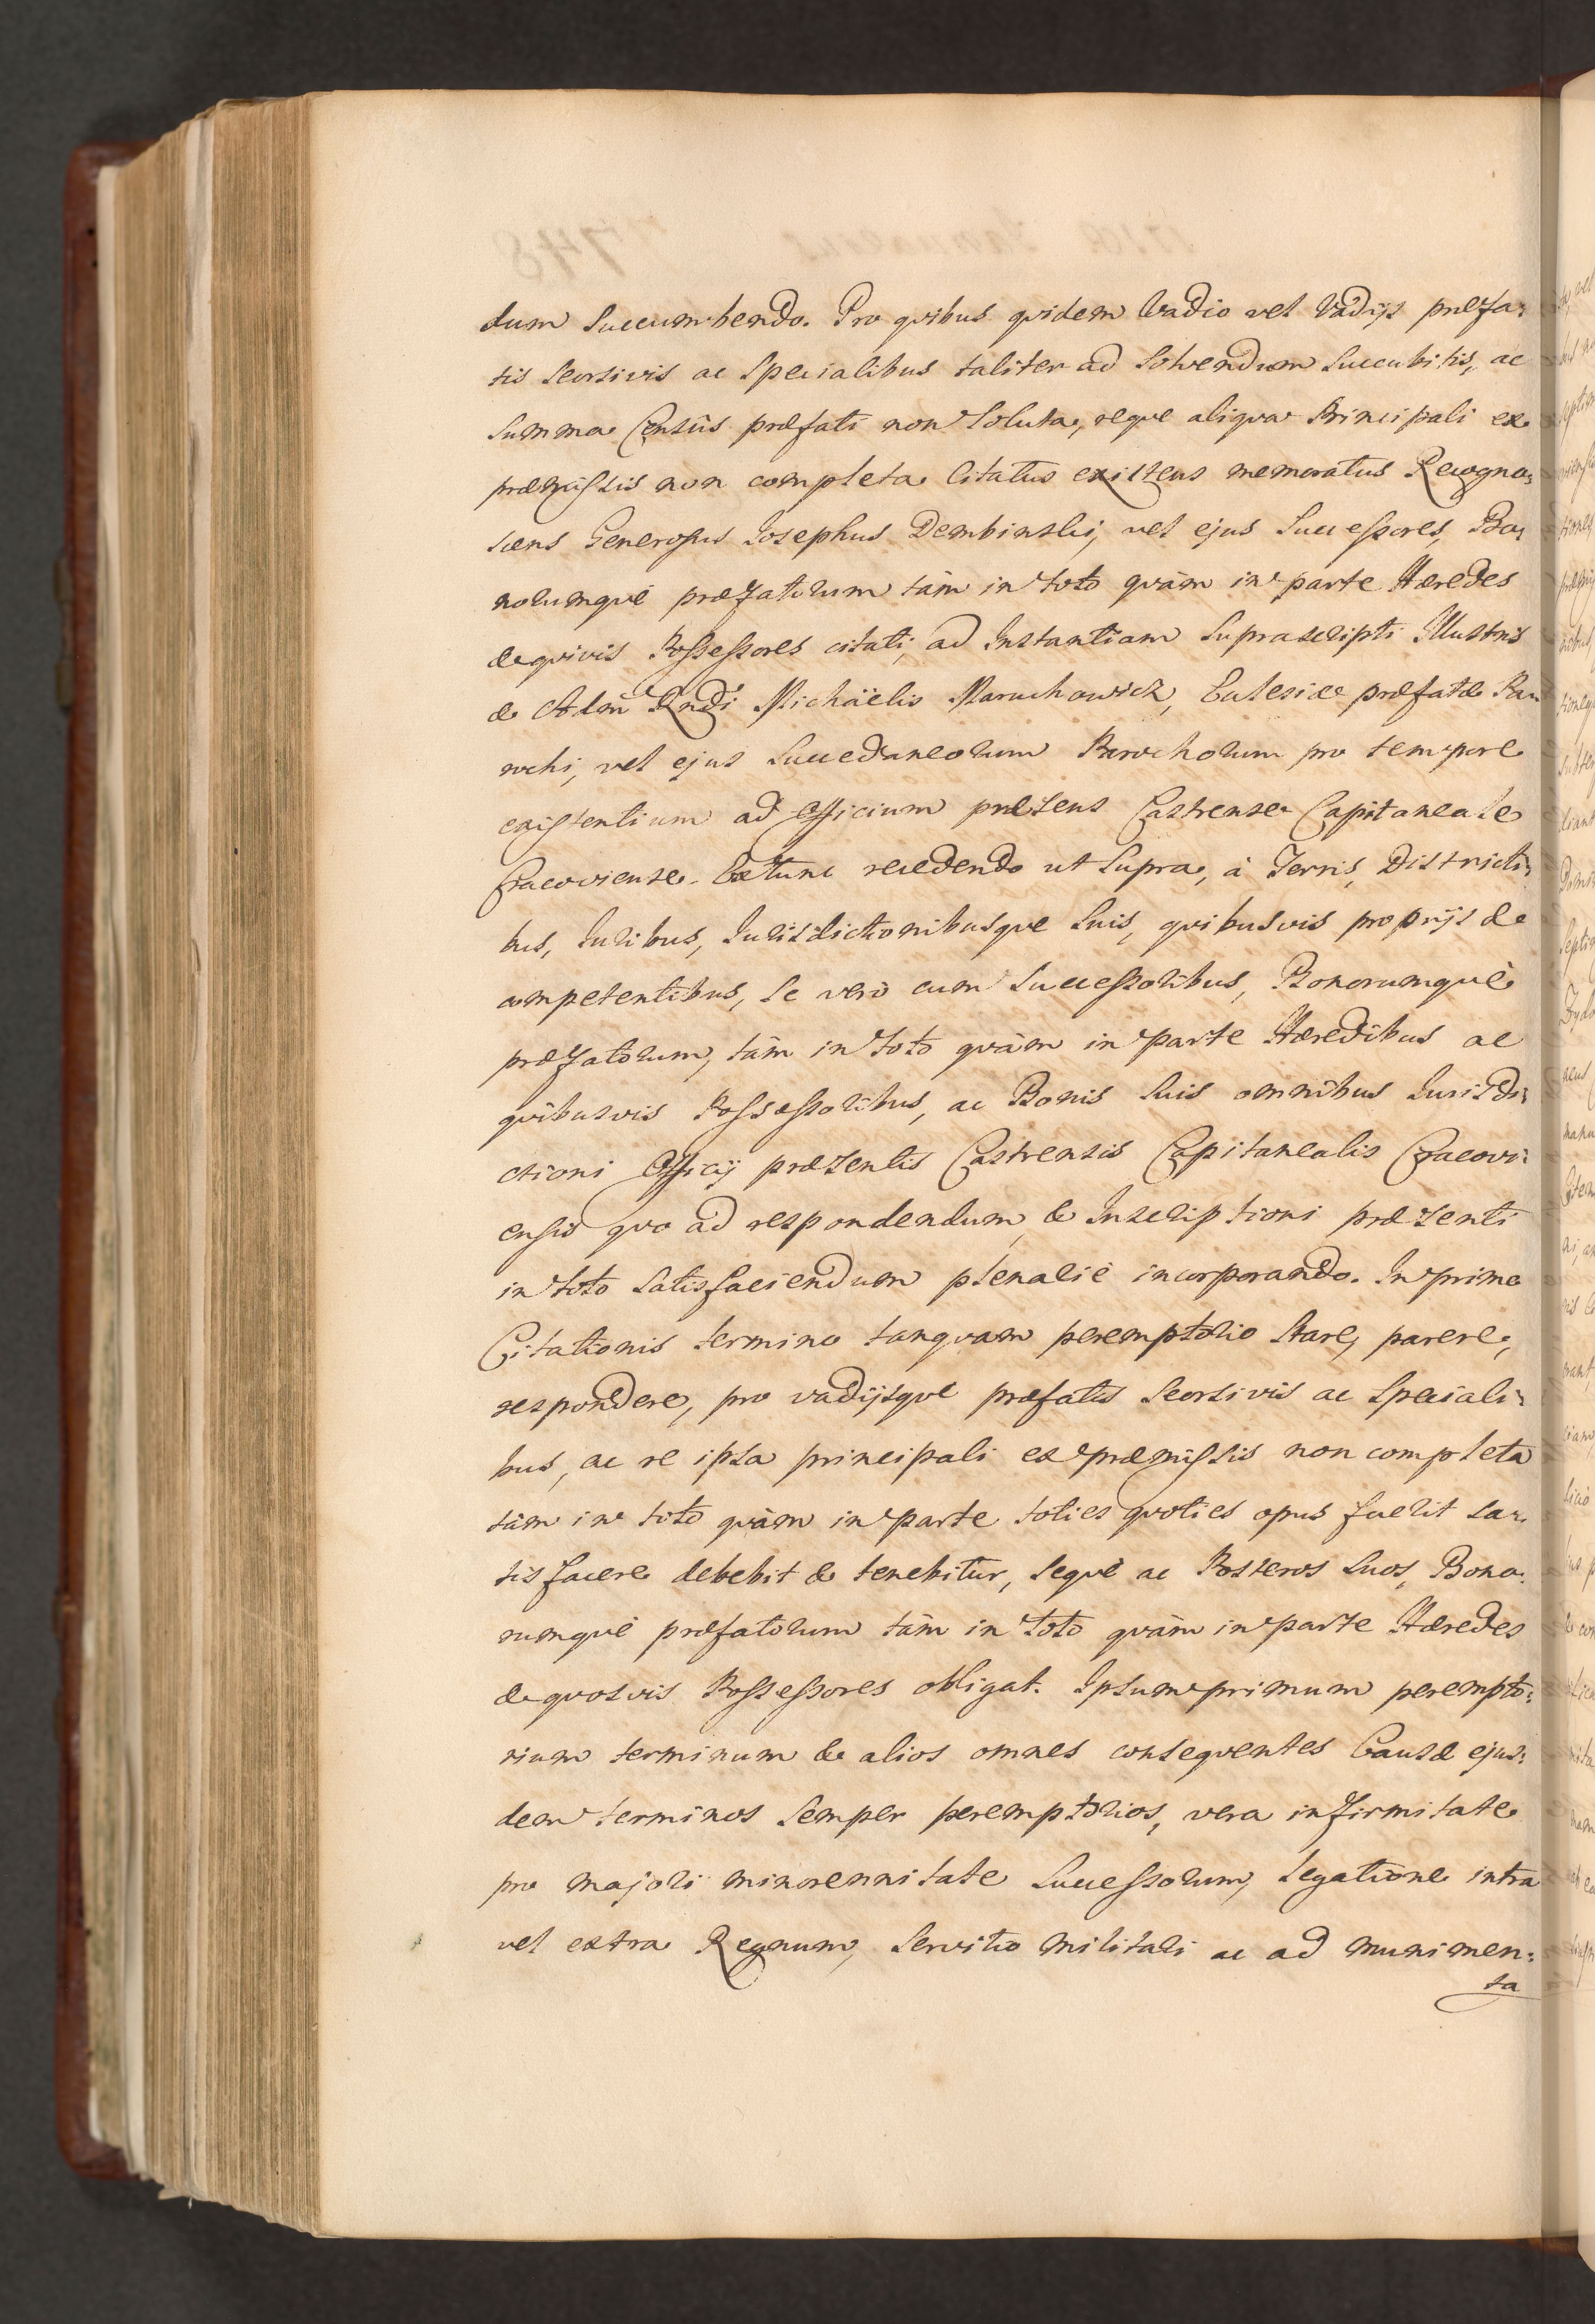 dum Succumbendo. Pro qvibus qvidem Vadio vel Vadijs præfa:
tis Seorsivis ac Specialibus taliter ad Solvendum Succubitis, ac
Summa Censûs præfati non Soluta, reqve aliqva Principali ex
præmissis non completa Citatus existens memoratus Recogno:
scens Generosus Josephus Dembinski, vel ejus Successores, Bo:
norumqvè præfatorum tàm in toto qvàm in parte Hæredes
& qvivis Possessores citati, ad Instantiam Suprascripti Illustris
& Adm Rndi Michaëlis Maruchowicz, Eclesiæ præfatæ Pa:
rochi, vel ejus Succedaneorum Parochorum pro tempore
existentium ad Officium præsens Castrense Capitaneale
Cracoviense. Extunc recedendo ut Supra, à Terris, Districti:
bus, Iuribus, Iurisdictionibusqve Suis, qvibusvis proprijs &
competentibus, Se verò cum Successoribus, Bonorumqvè
præfatorum, tàm in toto qvàm in parte Hæredibus ac
qvibusvis Possessoribus, ac Bonis Suis omnibus Iurisdi:
ctioni Officij præsentis Castrensis Capitanealis Cracovi:
ensis qvo ad respondendum, & Inscriptioni præsenti
in toto Satisfaciendum plenariè incorporando. In primo
Citationis termino tanqvam peremptorio Stare, parere,
respondere, pro vadijsqve præfatis Seorsivis ac Speciali:
bus, ac re ipsa principali ex præmissis non completa
tàm in toto qvàm in parte toties qvoties opus fuerit Sa:
tisfacere debebit & tenebitur, Seqvè ac Posteros Suos, Bono:
rumqvè præfatorum tàm in toto qvàm in parte Hæredes
& qvosvis Possessores obligat. Ipsum primum perempto:
rium terminum & alios omnes conseqventes Causæ ejus:
dem terminos Semper peremptorios, vera infirmitate
pro majori minorennitate Successorum, Legatione intra
vel extra Regnum, Servitio Militari ac ad munimen:
ta